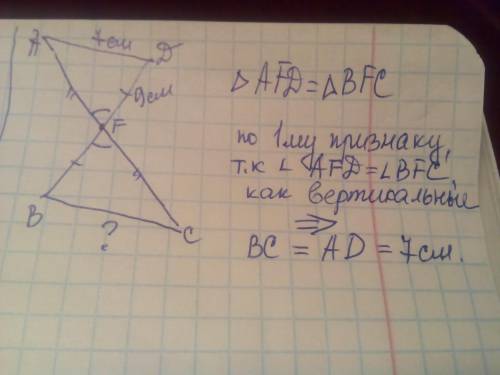 A
7см
D
9см
F
B
?
C
△AFD=△BFC
по 1му признаку,
т.к ∠ AFD=∠BFC,
как вертикальные
⇒
BC = AD = 7см.